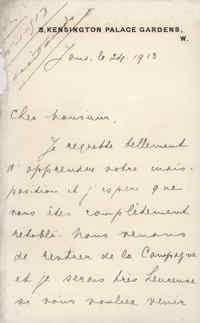 KENSINGTON PALACE GARDENS,
W.
le 24. 1913
Cher Monsieur.
Je regrette tellement
d'apprendre votre indis-
position et j'espère que
vous êtes complètement
rétabli. Nous venons
de rentrer de la Campagne
et je serais très heureuse
si vous vouliez venir